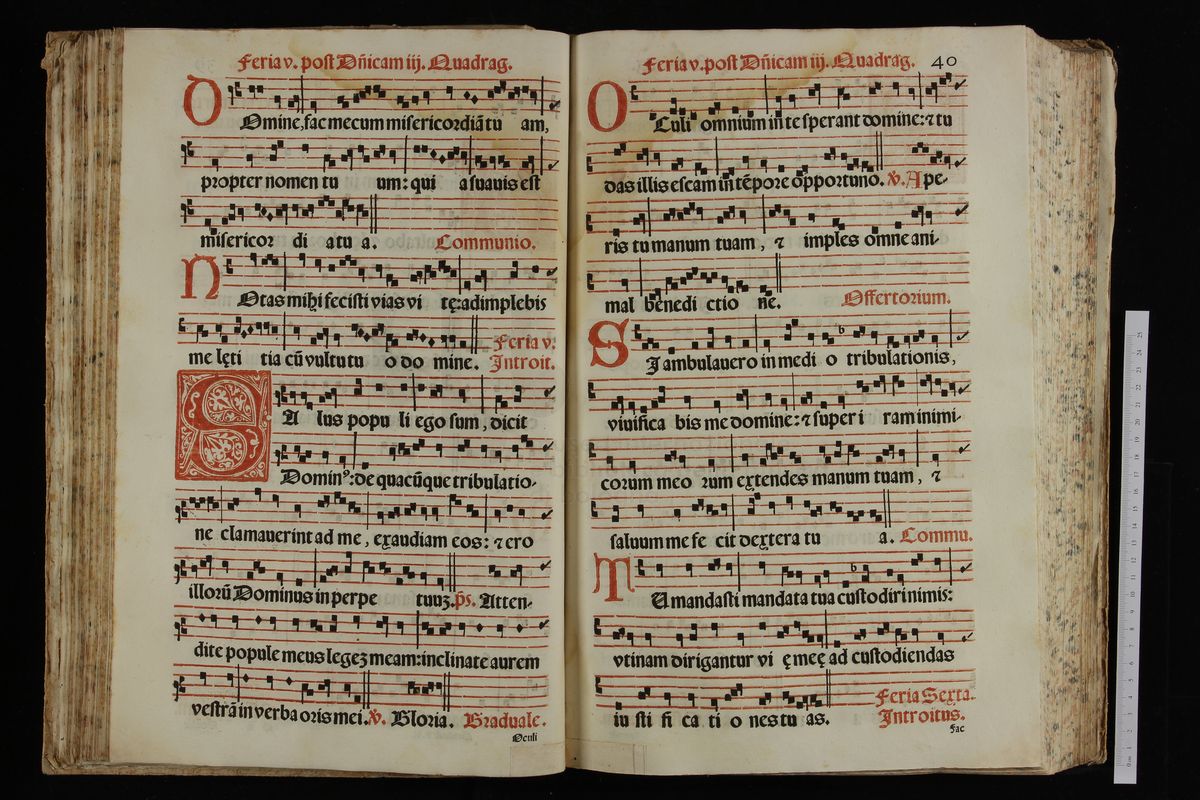 Feria v. post Dñicam iij. Quadrag.
DOmine, fac mecum misericordiā tu am,
propter nomen tu um: qui a suauis est
misericor di a tu a. Communio.
NOtas mihi fecisti vias vi tę: adimplebis
me lęti tia cū vultu tu o do mine. Feria v.
Introit.
SA lus popu li ego sum, dicit
Dominꝰ: de quacūque tribulatio-
ne clamauerint ad me, exaudiam eos: ⁊ ero
illorū Dominus in perpe tuuʒ. p̄s. Atten-
dite popule meus legeʒ meam: inclinate aurem
vestrā in verba oris mei. ℣. Gloria. Graduale.
Oculi
Feria v. post Dñicam iij. Quadrag. 40
OCuli omnium in te sperant domine: ⁊ tu
das illis escam in tēpore opportuno. ℣. Ape-
ris tu manum tuam, ⁊ imples omne ani-
mal benedi ctio ne. Offertorium.
SI ambulauero in medi o tribulationis,
viuifica bis me domine: ⁊ super i ram inimi-
corum meo rum extendes manum tuam, ⁊
saluum me fe cit dextera tu a. Commu.
TU mandasti mandata tua custodiri nimis:
vtinam dirigantur vi ę meę ad custodiendas
iu sti fi ca ti o nes tu as. Feria Sexta.
Introitus.
Fac